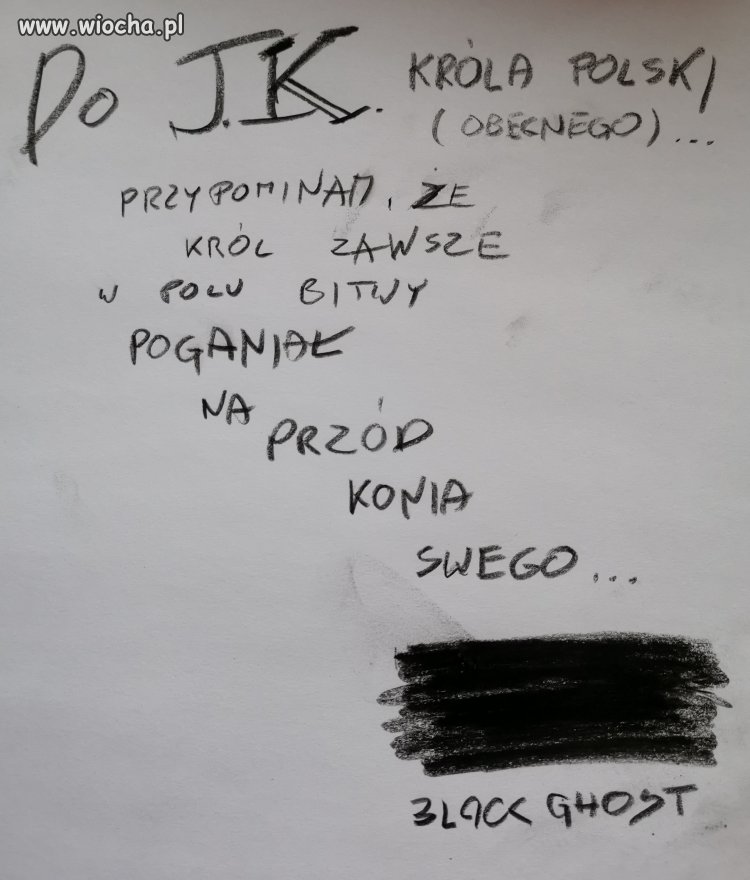 www.wiocha.pl
Do J.K. KRÓLA POLSKI
(OBECNEGO)...
PRZYPOMINAM, ŻE
KRÓL ZAWSZE
W POLU BITWY
POGANIAŁ
NA
PRZÓD
KONIA
SWEGO...
BLACK GHOST